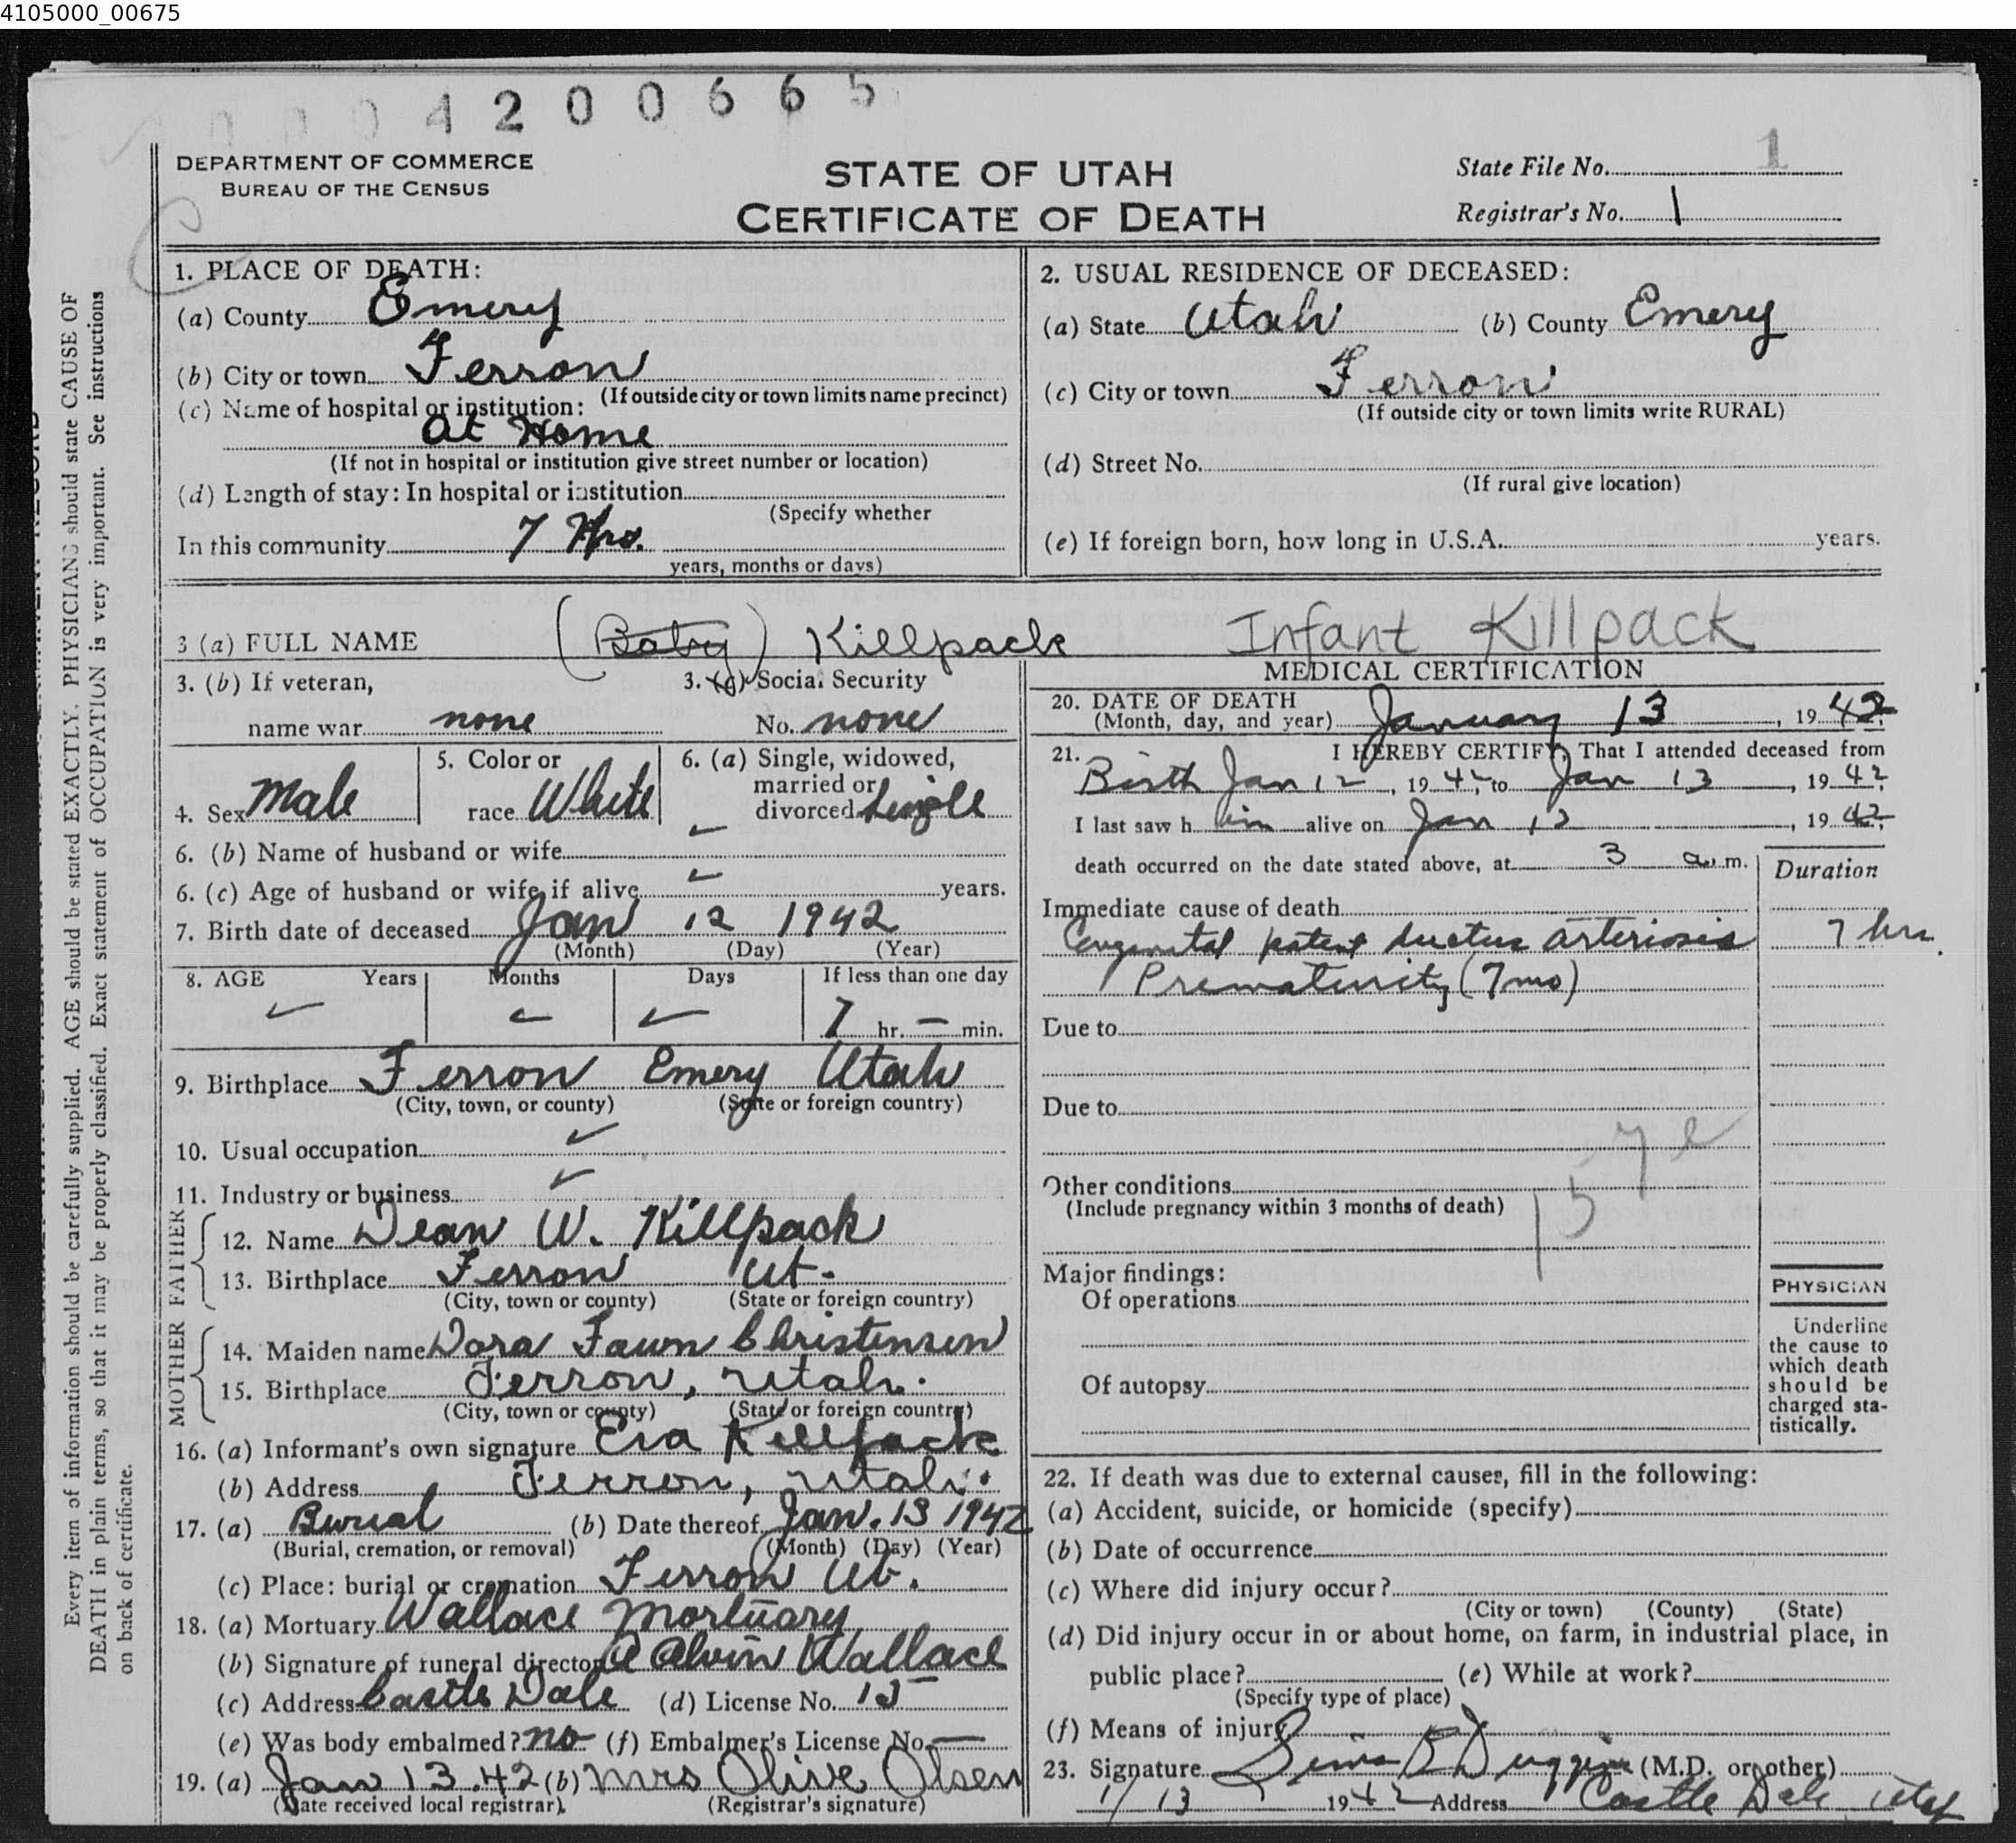 4105000_00675
0004200665
DEPARTMENT OF COMMERCE
BUREAU OF THE CENSUS
STATE OF UTAH
CERTIFICATE OF DEATH
State File No. 1
Registrar's No. 1
Every item of information should be carefully supplied. AGE should be stated EXACTLY. PHYSICIANS should state CAUSE OF
DEATH in plain terms, so that it may be properly classified. Exact statement of OCCUPATION is very important. See instructions
on back of certificate.
1. PLACE OF DEATH:
(a) County Emery
(b) City or town Ferron
(If outside city or town limits name precinct)
(c) Name of hospital or institution:
At Home
(If not in hospital or institution give street number or location)
(d) Length of stay: In hospital or institution
(Specify whether
In this community 7 Hrs.
years, months or days)
2. USUAL RESIDENCE OF DECEASED:
(a) State Utah (b) County Emery
(c) City or town Ferron
(If outside city or town limits write RURAL)
(d) Street No.
(If rural give location)
(e) If foreign born, how long in U.S.A. years.
3 (a) FULL NAME (Baby) Killpack Infant Killpack
3. (b) If veteran,
name war none
3. (c) Social Security
No. none
4. Sex Male
5. Color or
race White
6. (a) Single, widowed,
married or
divorced Single
6. (b) Name of husband or wife
6. (c) Age of husband or wife, if alive years.
7. Birth date of deceased Jan 12 1942
(Month) (Day) (Year)
8. AGE Years Months Days If less than one day
7 hr. — min.
9. Birthplace Ferron Emery Utah
(City, town, or county) (State or foreign country)
10. Usual occupation
11. Industry or business
FATHER
12. Name Dean W. Killpack
13. Birthplace Ferron Ut.
(City, town or county) (State or foreign country)
MOTHER
14. Maiden name Dora Fawn Christensen
15. Birthplace Ferron, Utah.
(City, town or county) (State or foreign country)
16. (a) Informant's own signature Eva Killpack
(b) Address Ferron, Utah.
17. (a) Burial (b) Date thereof Jan. 13 1942
(Burial, cremation, or removal) (Month) (Day) (Year)
(c) Place: burial or cremation Ferron Ut.
18. (a) Mortuary Wallace Mortuary
(b) Signature of funeral director A Alvin Wallace
(c) Address Castle Dale (d) License No. 15
(e) Was body embalmed? no (f) Embalmer's License No. —
19. (a) Jan 13.42 (b) Mrs Olive Olsen
(Date received local registrar) (Registrar's signature)
MEDICAL CERTIFICATION
20. DATE OF DEATH
(Month, day, and year) January 13, 1942
21. I HEREBY CERTIFY, That I attended deceased from
Birth Jan 12, 1942, to Jan 13, 1942
I last saw him alive on Jan 12, 1942;
death occurred on the date stated above, at 3 a.m.
Duration
Immediate cause of death
Congenital patent ductus arteriosis 7 hrs.
Prematurity (7mo)
Due to
Due to
Other conditions
(Include pregnancy within 3 months of death)
Major findings:
Of operations
Of autopsy
PHYSICIAN
Underline
the cause to
which death
should be
charged sta-
tistically.
22. If death was due to external causes, fill in the following:
(a) Accident, suicide, or homicide (specify)
(b) Date of occurrence
(c) Where did injury occur?
(City or town) (County) (State)
(d) Did injury occur in or about home, on farm, in industrial place, in
public place? (e) While at work?
(Specify type of place)
(f) Means of injury
23. Signature Duggins (M.D. or other)
1/13 1942 Address Castle Dale Utah